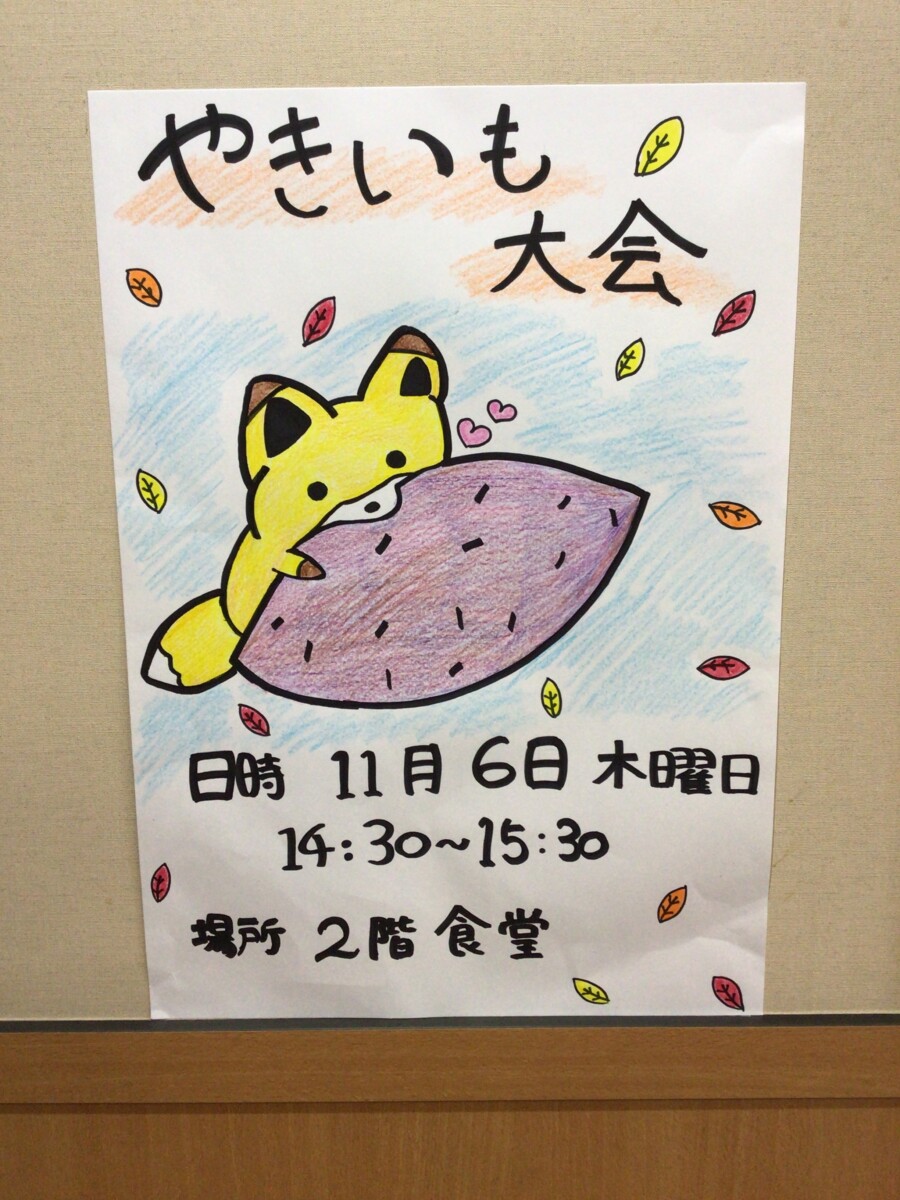 やきいも
大会
日時 11月 6日 木曜日
14:30~15:30
場所 2階 食堂